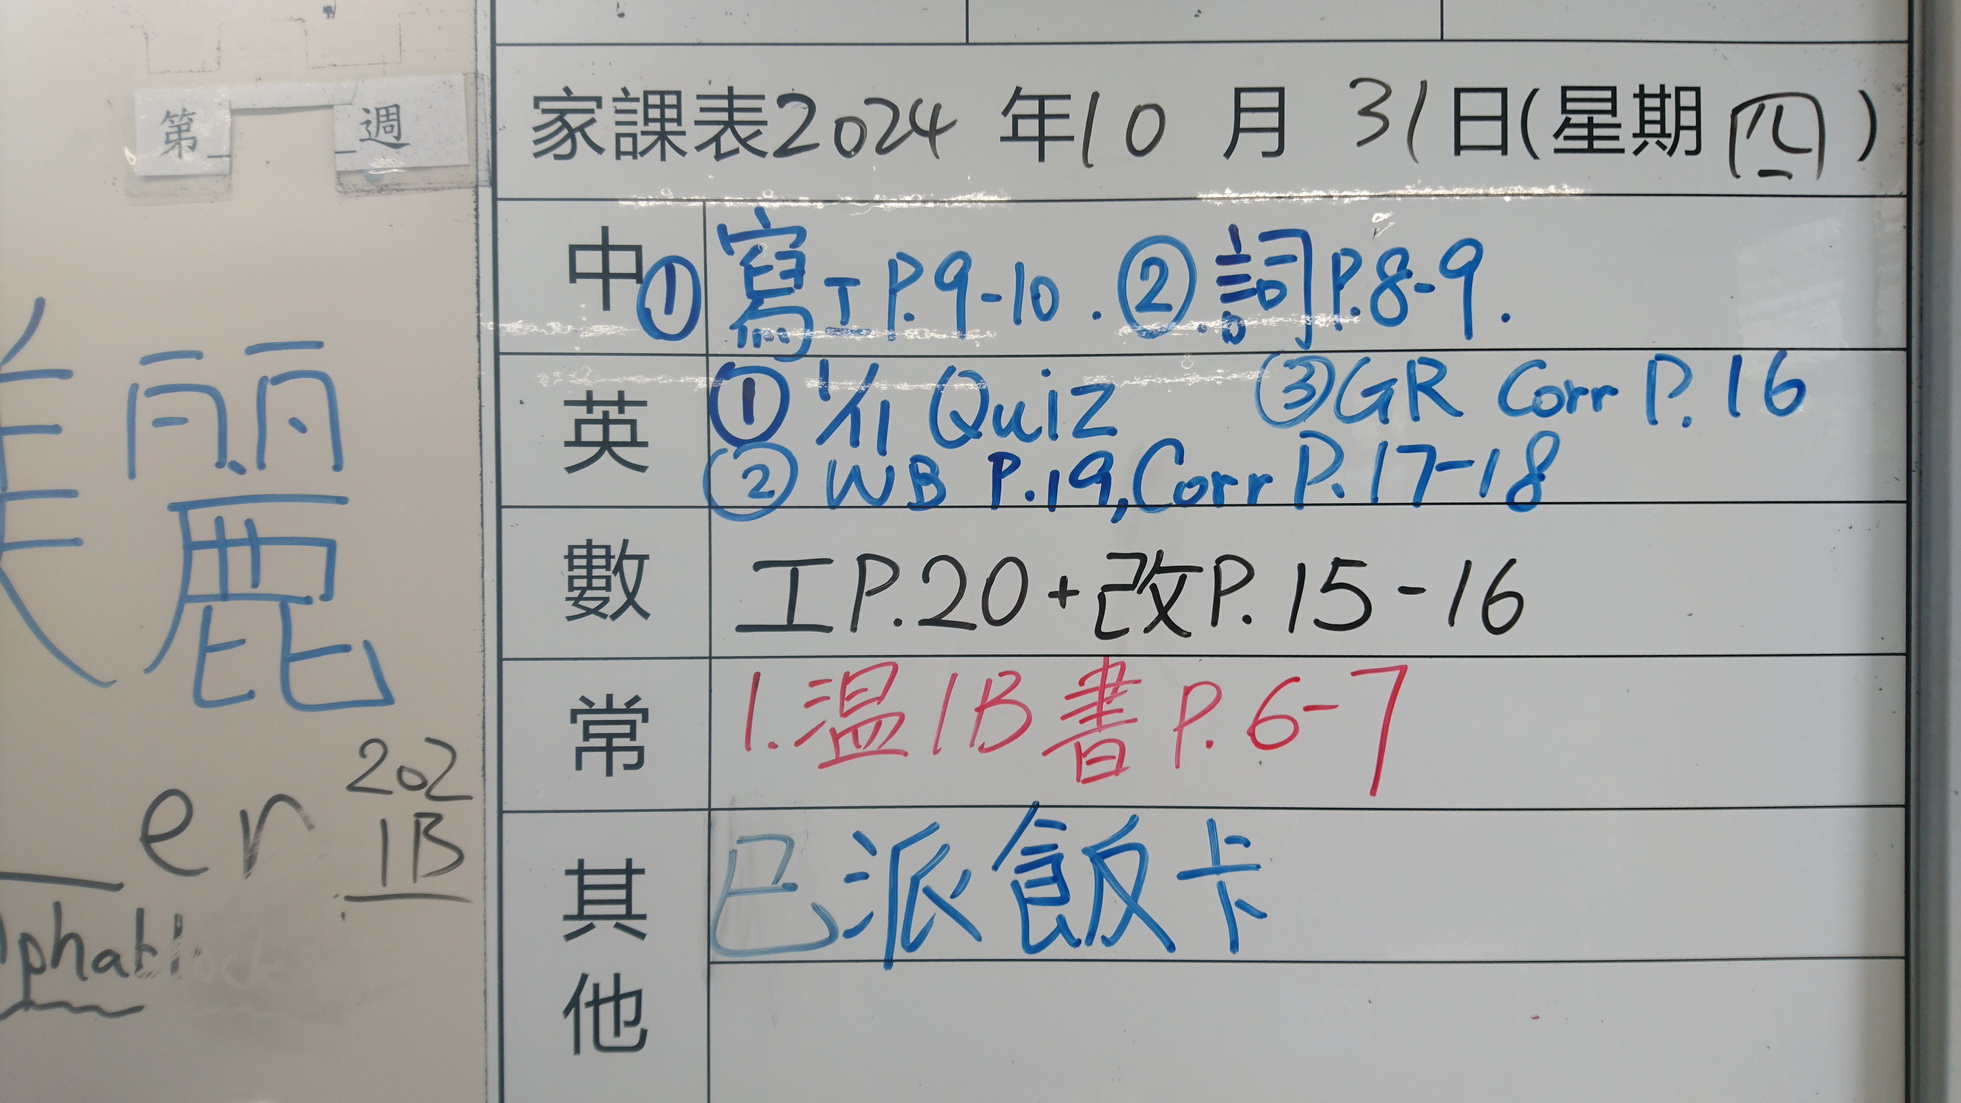 第 週
家課表2024年10月31日(星期四)
中 ①寫工P.9-10.②.詞P.8-9.
英 ①1/11 Quiz ③GR Corr P.16
②WB P.19,Corr P.17-18
數 工P.20+改P.15-16
常 1.溫1B書P.6-7
其他 已派飯卡
美麗
er
202
1B